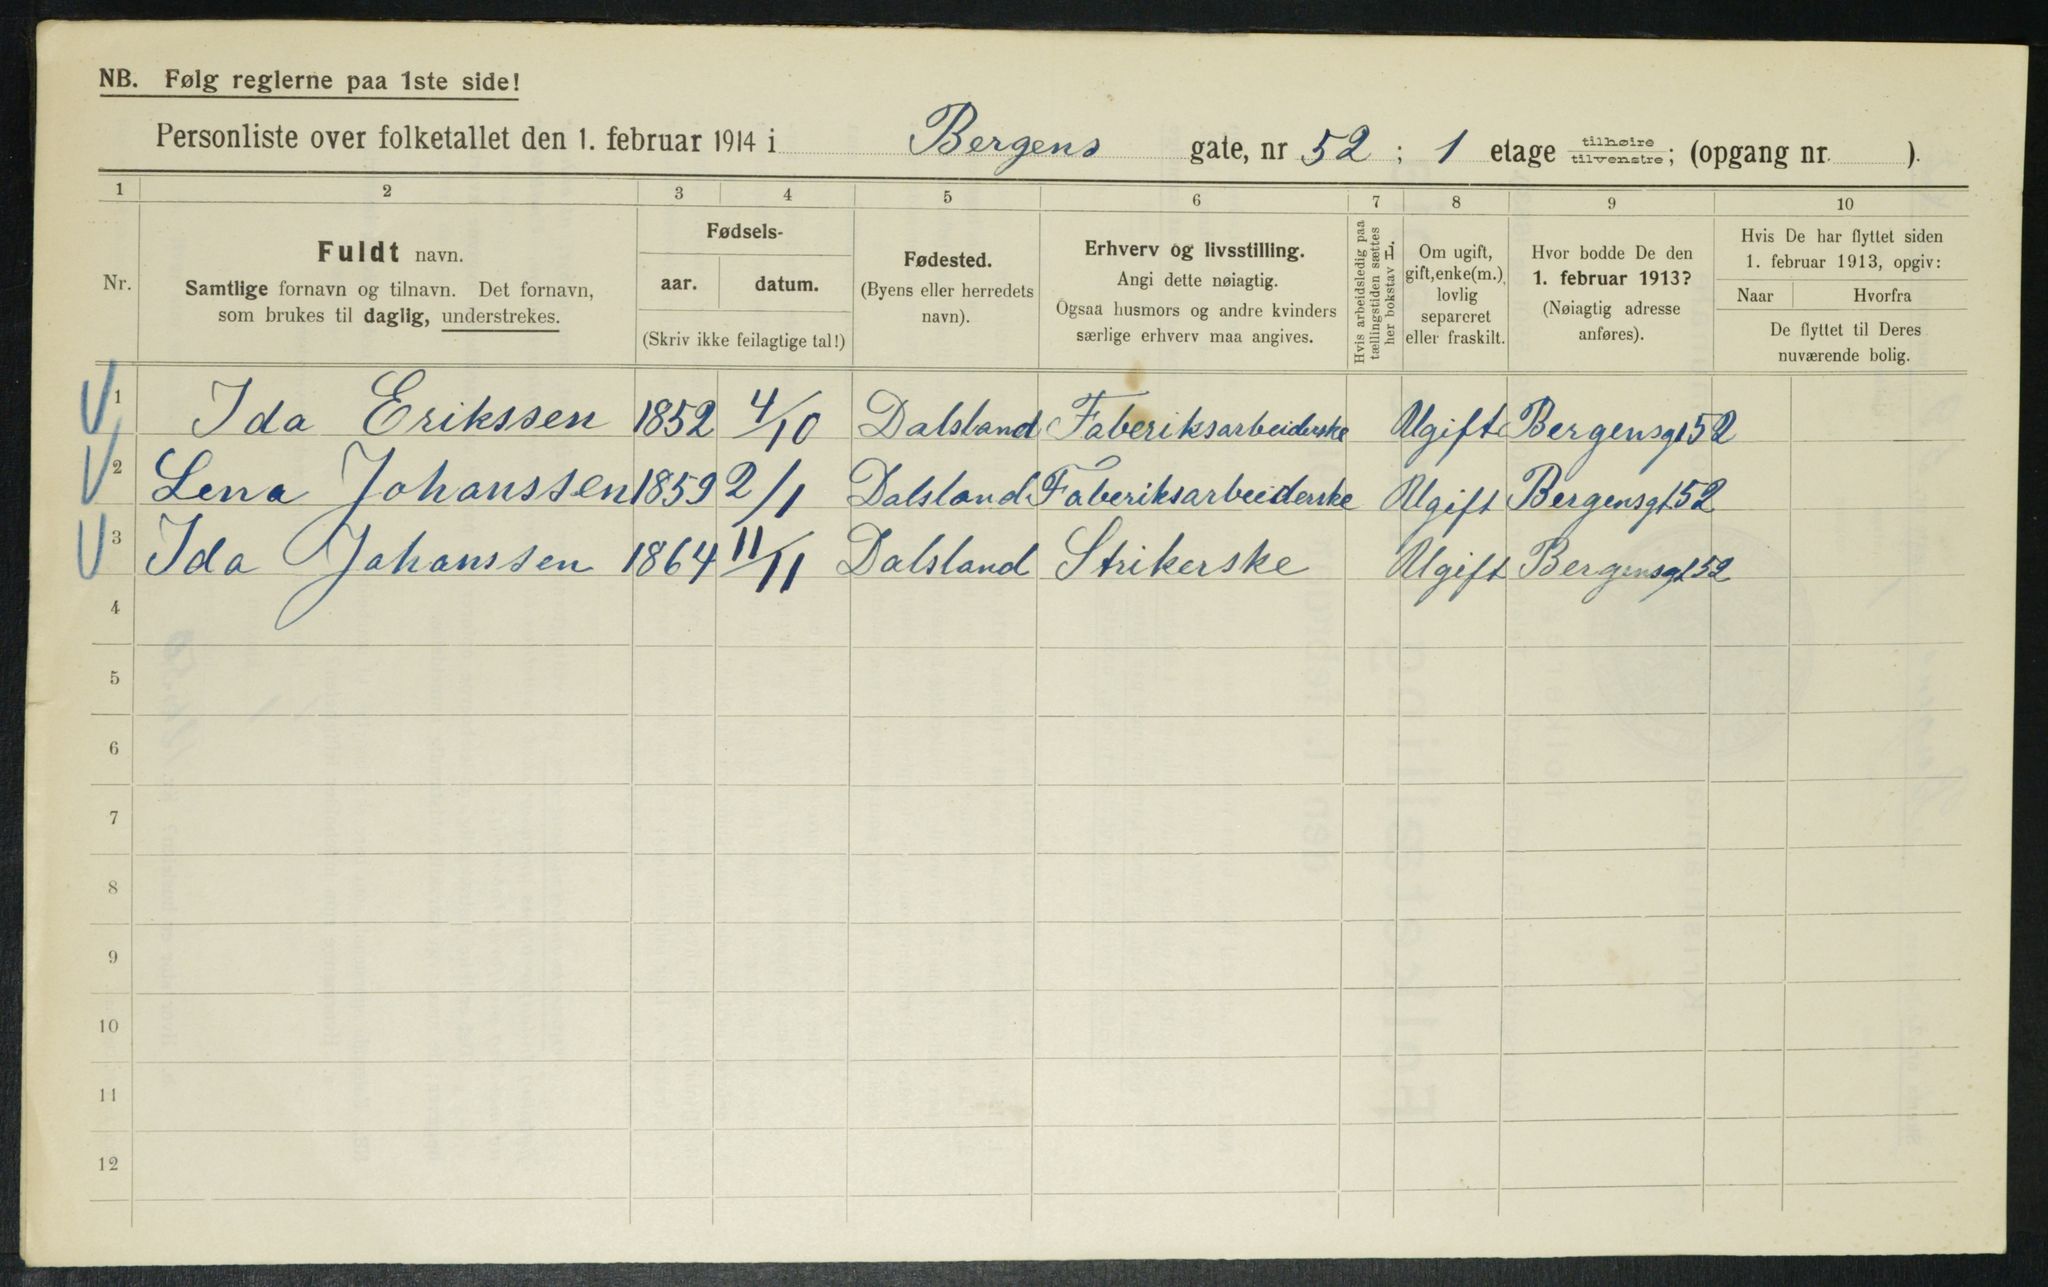 NB. Følg reglerne paa 1ste side!
Personliste over folketallet den 1. februar 1914 i Bergens gate, nr 52 ; 1 etage tilhøire tilvenstre ; (opgang nr. ).
1 2 3 4 5 6 7 8 9 10
Nr.
Fuldt navn.
Samtlige fornavn og tilnavn. Det fornavn,
som brukes til daglig, understrekes.
Fødsels-
aar. datum.
(Skriv ikke feilagtige tal!)
Fødested.
(Byens eller herredets
navn).
Erhverv og livsstilling.
Angi dette nøiagtig.
Ogsaa husmors og andre kvinders
særlige erhverv maa angives.
Hvis arbeidsledig paa
tællingstiden sættes
her bokstav L.
Om ugift,
gift, enke(m.),
lovlig
separeret
eller fraskilt.
Hvor bodde De den
1. februar 1913?
(Nøiagtig adresse
anføres).
Hvis De har flyttet siden
1. februar 1913, opgiv:
Naar Hvorfra
De flyttet til Deres
nuværende bolig.
1 Ida Erikssen 1852 4/10 Dalsland Faberiksarbeiderske Ugift Bergensgt 52
2 Lena Johanssen 1859 2/1 Dalsland Faberiksarbeiderske Ugift Bergensgt. 52
3 Ida Johanssen 1864 11/11 Dalsland Strikerske Ugift Bergensgt 52
4
5
6
7
8
9
10
11
12